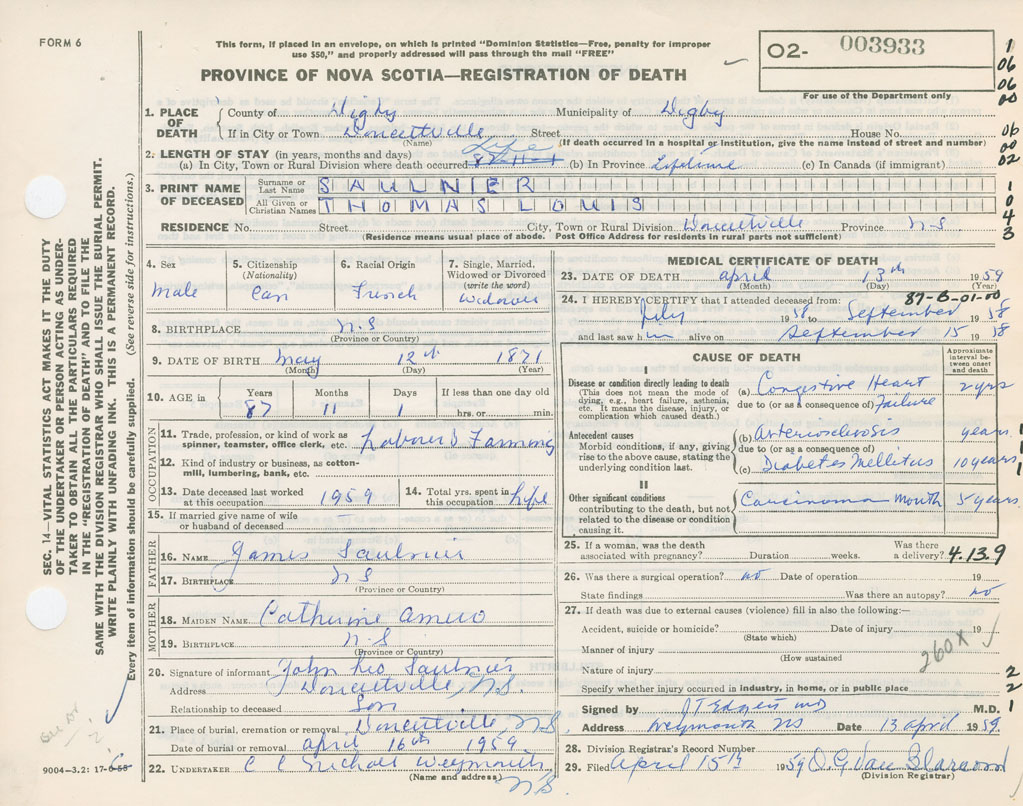 FORM 6
This form, if placed in an envelope, on which is printed "Dominion Statistics—Free, penalty for improper
use $50," and properly addressed will pass through the mail "FREE"
PROVINCE OF NOVA SCOTIA—REGISTRATION OF DEATH
02- 003933
For use of the Department only
1
06
06
00
06
00
02
1
0
4
3
1. PLACE OF DEATH
County of Digby Municipality of Digby
If in City or Town Doucetville Street House No.
(Name) (If death occurred in a hospital or institution, give the name instead of street and number)
2. LENGTH OF STAY (in years, months and days) Life
(a) In City, Town or Rural Division where death occurred (b) In Province Lifetime (c) In Canada (if immigrant)
3. PRINT NAME OF DECEASED
Surname or Last Name SAULNIER
All Given or Christian Names THOMAS LOUIS
RESIDENCE No. Street City, Town or Rural Division Doucetville Province N-S
(Residence means usual place of abode. Post Office Address for residents in rural parts not sufficient)
4. Sex
Male
5. Citizenship
(Nationality)
Can
6. Racial Origin
French
7. Single, Married,
Widowed or Divorced
(write the word)
Widower
8. BIRTHPLACE N.S
(Province or Country)
9. DATE OF BIRTH May 12th 1871
(Month) (Day) (Year)
10. AGE in Years Months Days If less than one day old
87 11 1 hrs. or min.
OCCUPATION
11. Trade, profession, or kind of work as
spinner, teamster, office clerk, etc. Labour & Farming
12. Kind of industry or business, as cotton-
mill, lumbering, bank, etc.
13. Date deceased last worked
at this occupation 1959
14. Total yrs. spent in
this occupation life
15. If married give name of wife
or husband of deceased
FATHER
16. NAME James Saulnier
17. BIRTHPLACE N S
(Province or Country)
MOTHER
18. MAIDEN NAME Catherine Amero
19. BIRTHPLACE N.S
(Province or Country)
20. Signature of informant John Leo Saulnier
Address Doucetville, N.S.
Relationship to deceased Son
21. Place of burial, cremation or removal Doucetville N.S
Date of burial or removal April 16th 1959
22. UNDERTAKER C C Nichols Weymouth
(Name and address) N.S.
MEDICAL CERTIFICATE OF DEATH
23. DATE OF DEATH April 13th 1959
(Month) (Day) (Year)
24. I HEREBY CERTIFY that I attended deceased from: 87-6-01-00
July 1958 to September 1958
and last saw him alive on September 15 1958
CAUSE OF DEATH
Approximate
interval be-
tween onset
and death
I
Disease or condition directly leading to death
(This does not mean the mode of
dying, e.g., heart failure, asthenia,
etc. It means the disease, injury, or
complication which caused death.)
(a) Congestive Heart 2 yrs
due to (or as a consequence of) Failure
Antecedent causes
Morbid conditions, if any, giving
rise to the above cause, stating the
underlying condition last.
(b) Arteriosclerosis years 1
due to (or as a consequence of)
(c) Diabetes Mellitus 10 years 1
II
Other significant conditions
contributing to the death, but not
related to the disease or condition
causing it.
Carcinoma Mouth 5 years
25. If a woman, was the death
associated with pregnancy? Duration weeks. Was there
a delivery? 4.139
26. Was there a surgical operation? no Date of operation 19
State findings Was there an autopsy? no
27. If death was due to external causes (violence) fill in also the following:—
Accident, suicide or homicide? Date of injury 19
(State which)
Manner of injury 260X
(How sustained
Nature of injury 2
Specify whether injury occurred in industry, in home, or in public place 2
Signed by M.D. 1
Address Weymouth NS Date 13 April 1959
28. Division Registrar's Record Number
29. Filed April 15th 1959
(Division Registrar)
SEC. 14—VITAL STATISTICS ACT MAKES IT THE DUTY
OF THE UNDERTAKER OR PERSON ACTING AS UNDER-
TAKER TO OBTAIN ALL THE PARTICULARS REQUIRED
IN THE "REGISTRATION OF DEATH" AND TO FILE THE
SAME WITH THE DIVISION REGISTRAR WHO SHALL ISSUE THE BURIAL PERMIT.
WRITE PLAINLY WITH UNFADING INK. THIS IS A PERMANENT RECORD.
Every item of information should be carefully supplied. (See reverse side for instructions.)
9004-3.2: 17-6-58